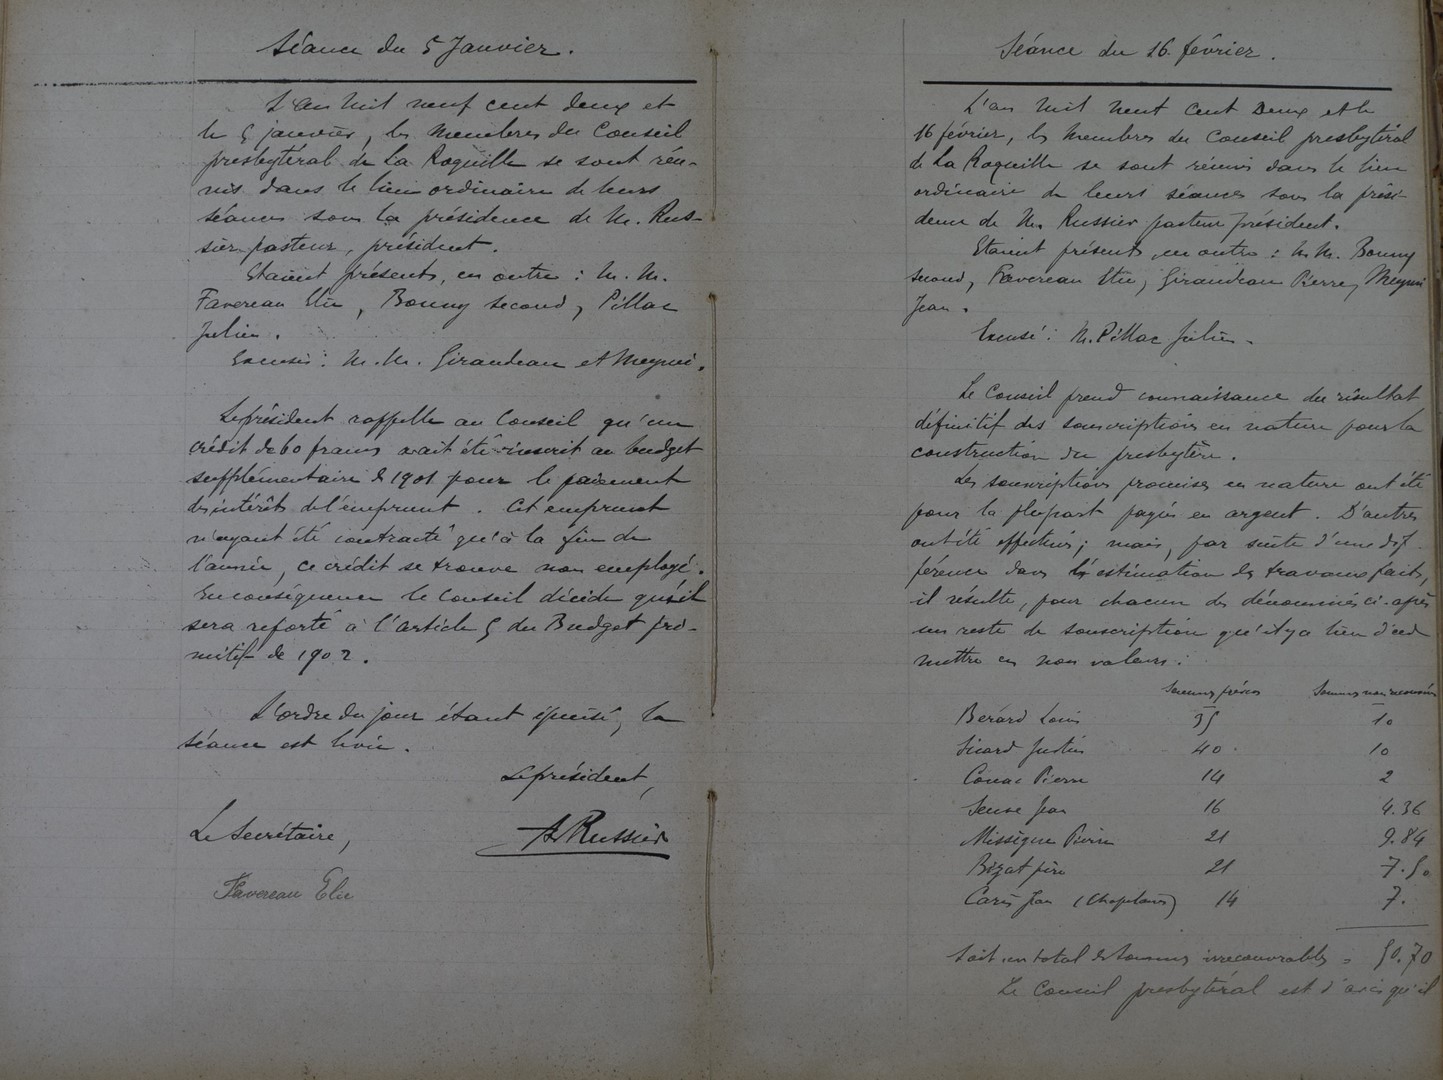 Séance du 5 Janvier.
L'an mil neuf cent deux et
le 5 janvier, les membres du Conseil
presbytéral de La Roquille se sont réu-
nis dans le lieu ordinaire de leurs
séances sous la présidence de M. Rus-
sier pasteur, président.
Etaient présents, en outre : M. M.
Favereau Elie, Bonny second, Pillac
Julien.
Excusés : M. M. Girandeau et Meynie.
Le président rappelle au Conseil qu'un
crédit de 60 francs avait été inscrit au budget
supplémentaire de 1901 pour le paiement
des intérêts de l'emprunt. Cet emprunt
n'ayant été contracté qu'à la fin de
l'année, ce crédit se trouve non employé.
En conséquence le Conseil décide qu'il
sera reporté à l'article 5 du Budget pri-
mitif de 1902.
L'ordre du jour étant épuisé, la
séance est levée.
Le président,
Le Secrétaire,
A. Russier
Favereau Elie
Séance du 16 février.
L'an mil neuf cent Deux et le
16 février, les membres du Conseil presbytéral
de La Roquille se sont réunis dans le lieu
ordinaire de leurs séances sous la prési-
dence de M. Russier pasteur président.
Etaient présents, en outre : M. M. Bonny
second, Favereau Elie, Girandeau Pierre, Meynie
Jean.
Excusé : M. Pillac Julien.
Le Conseil prend connaissance du résultat
définitif des souscriptions en nature pour la
construction du presbytère.
Les souscriptions promises en nature ont été
pour la plupart payées en argent. D'autres
ont été effectués ; mais, par suite d'une dif-
férence dans l'estimation des travaux faits,
il résulte, pour chacun des dénommés ci-après
un reste de souscription qu'il y a lieu d'ad
mettre en non valeurs :
Sommes Sommes non recouvrées
Bérard Louis 35 10
Sicard Justin 40 10
Conac Pierre 14 2
Jean 16 4.36
Missègue Pierre 21 9.84
Bizat père 21 7.50
Carès Jean 14 7.
Soit un total de sommes irrecouvrables = 50.70
Le Conseil presbytéral est d'avis qu'il